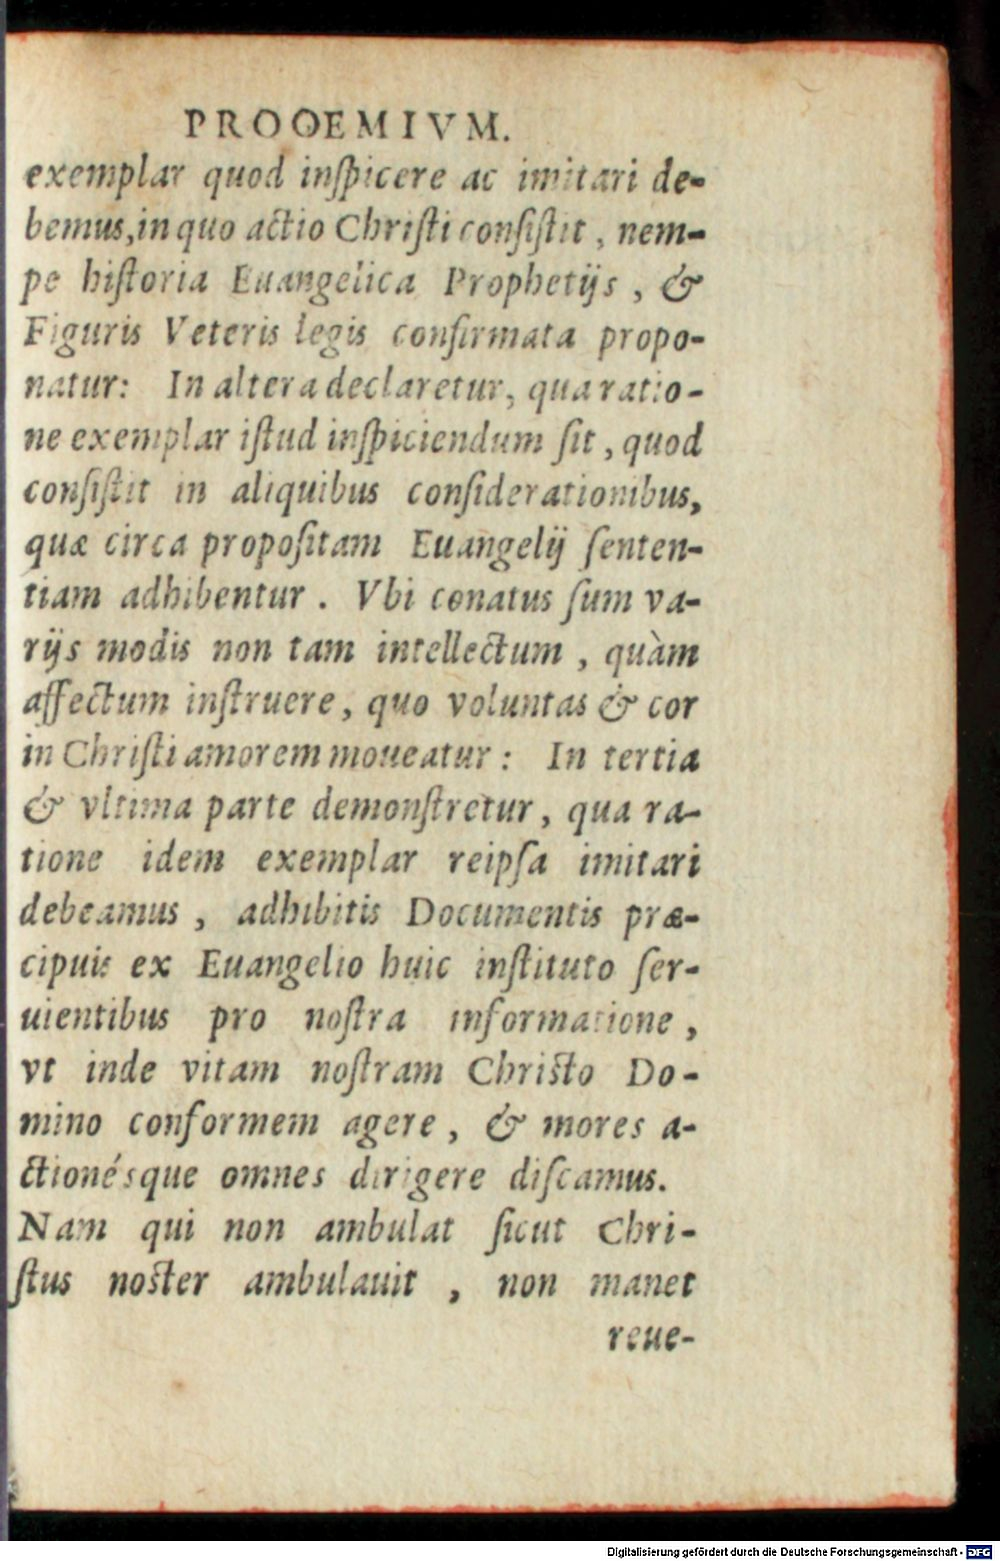 PROOEMIVM.
exemplar quod inſpicere ac imitari de-
bemus, in quo actio Chriſti conſiſtit, nem-
pe hiſtoria Euangelica Prophetijs, &
Figuris Veteris legis confirmata propo-
natur: In altera declaretur, qua ratio-
ne exemplar iſtud inſpiciendum ſit, quod
conſiſtit in aliquibus conſiderationibus,
quæ circa propoſitam Euangelij ſenten-
tiam adhibentur. Vbi conatus ſum va-
rijs modis non tam intellectum, quàm
affectum inſtruere, quo voluntas & cor
in Chriſti amorem moueatur: In tertia
& vltima parte demonſtretur, qua ra-
tione idem exemplar reipſa imitari
debeamus, adhibitis Documentis præ-
cipuis ex Euangelio huic inſtituto ſer-
uientibus pro noſtra informatione,
vt inde vitam noſtram Chriſto Do-
mino conformem agere, & mores a-
ctionésque omnes dirigere diſcamus.
Nam qui non ambulat ſicut Chri-
ſtus noſter ambulauit, non manet
reue-
Digitalisierung gefördert durch die Deutsche Forschungsgemeinschaft - DFG